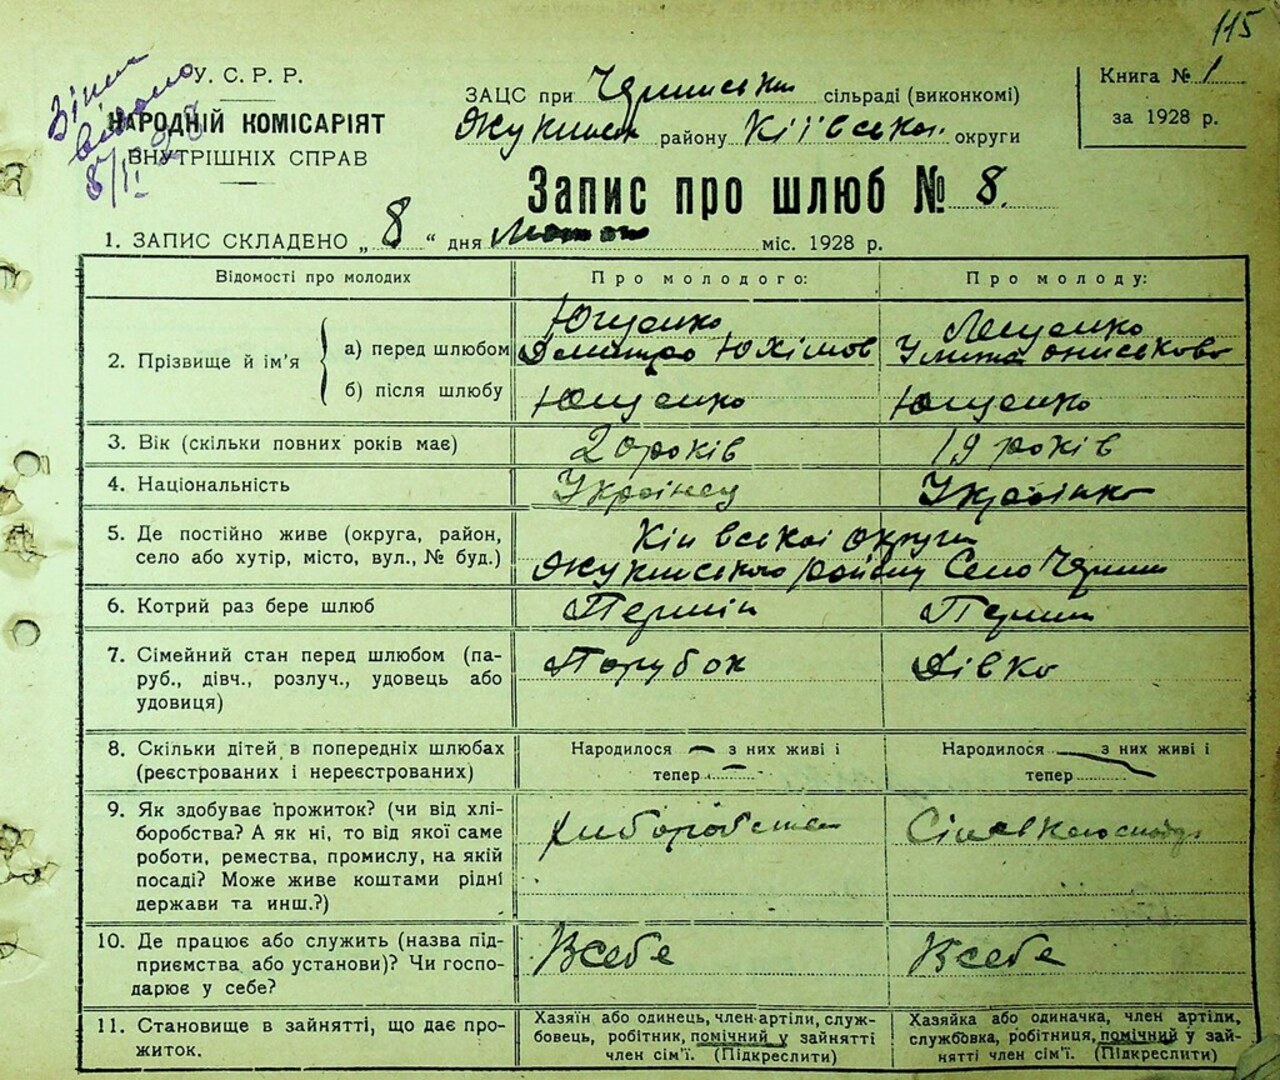 115
У. С. Р. Р.
НАРОДНІЙ КОМІСАРІЯТ
ВНУТРІШНІХ СПРАВ
ЗАЦС при сільраді (виконкомі)
району Київської округи
Книга № 1
за 1928 р.
Запис про шлюб № 8.
1. ЗАПИС СКЛАДЕНО „ 8 “ дня міс. 1928 р.
Відомості про молодих
Про молодого:
Про молоду:
2. Прізвище й ім’я
а) перед шлюбом
Ющенко
Лещенко
б) після шлюбу
Ющенко
Ющенко
3. Вік (скільки повних років має)
20 років
19 років
4. Національність
Українец
Українка
5. Де постійно живе (округа, район,
село або хутір, місто, вул., № буд.)
Київської округи
Жукинського району Село
6. Котрий раз бере шлюб
Перший
7. Сімейний стан перед шлюбом (па-
руб., дівч., розлуч., удовець або
удовиця)
Парубок
Дівка
8. Скільки дітей в попередніх шлюбах
(реєстрованих і нереєстрованих)
Народилося — з них живі і
тепер —
Народилося — з них живі і
тепер
9. Як здобуває прожиток? (чи від хлі-
боробства? А як ні, то від якої саме
роботи, ремества, промислу, на якій
посаді? Може живе коштами рідні
держави та инш.?)
10. Де працює або служить (назва під-
приємства або установи)? Чи госпо-
дарює у себе?
В себе
В себе
11. Становище в зайнятті, що дає про-
житок.
Хазяїн або одинець, член артіли, служ-
бовець, робітник, помічний у зайнятті
член сім’ї. (Підкреслити)
Хазяйка або одиначка, член артіли,
службовка, робітниця, помічний у зай-
нятті член сім’ї. (Підкреслити)